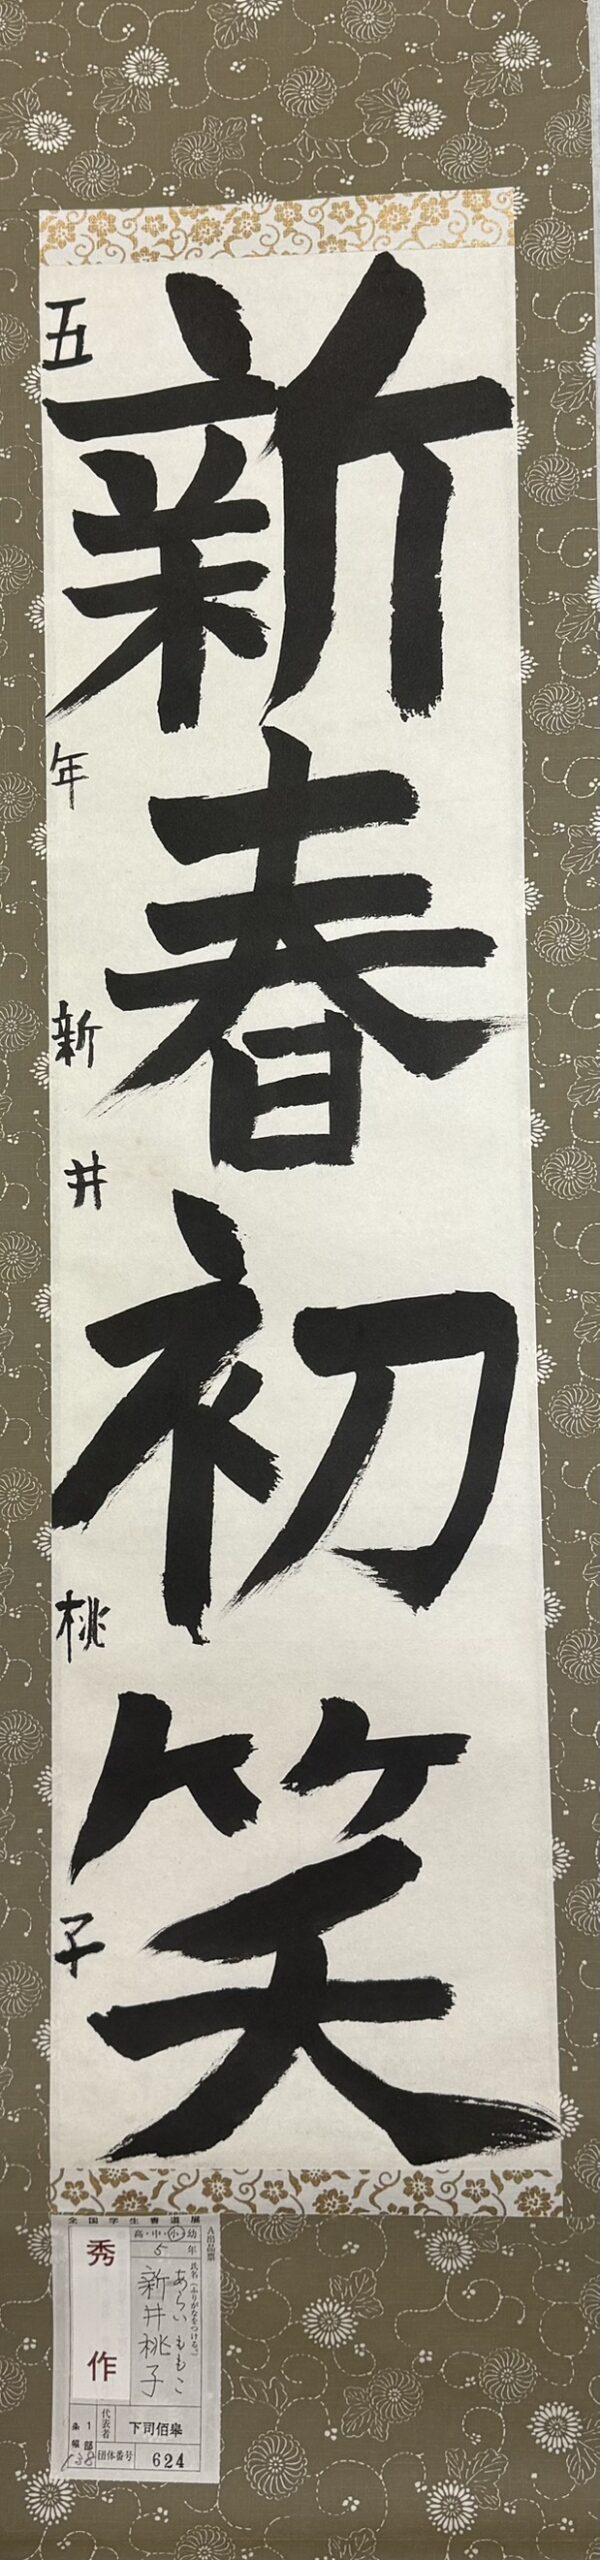 新春初笑
五年 新井桃子
全国学生書道展
A出品票
高・中・小・幼
5年
氏名(ふりがなをつける。)
あらい ももこ
新井桃子
秀作
代表者 下司佰皋
団体番号 624
1部
条幅
138